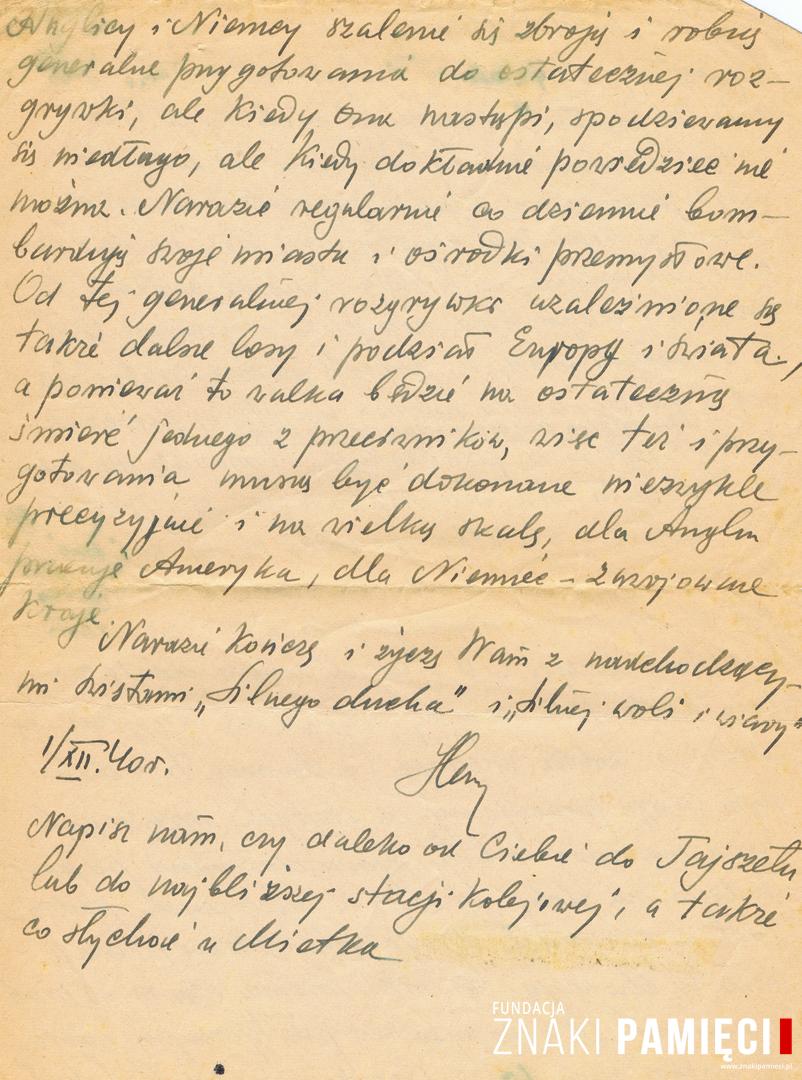 Anglicy i Niemcy szalenie się zbroją i robią
generalne przygotowania do ostatecznej roz-
grywki, ale kiedy ona nastąpi, spodziewamy
się niedługo, ale kiedy dokładnie powiedzieć nie
można. Narazie regularnie co dziennie bom-
bardują swoje miasta i ośrodki przemysłowe.
Od tej generalnej rozgrywki uzależnione są
także dalsze losy i podział Europy i świata,
a ponieważ to walka będzie na ostateczną
śmierć jednego z przeciwników, więc też i przy-
gotowania muszą być dokonane niezwykle
precyzyjnie i na wielką skalę, dla Anglii
pracuje Ameryka, dla Niemiec - zawojowane
kraje.
Narazie kończę i życzę Wam z nadchodzący-
mi świętami „silnego ducha" i „silnej woli i wiary"
1/XII.40r.
Hen
Napisz nam, czy daleko od Ciebie do Tajszetu
lub do najbliższej stacji kolejowej, a także
co słychać u Mietka
FUNDACJA
ZNAKI PAMIĘCI
www.znakipamieci.pl